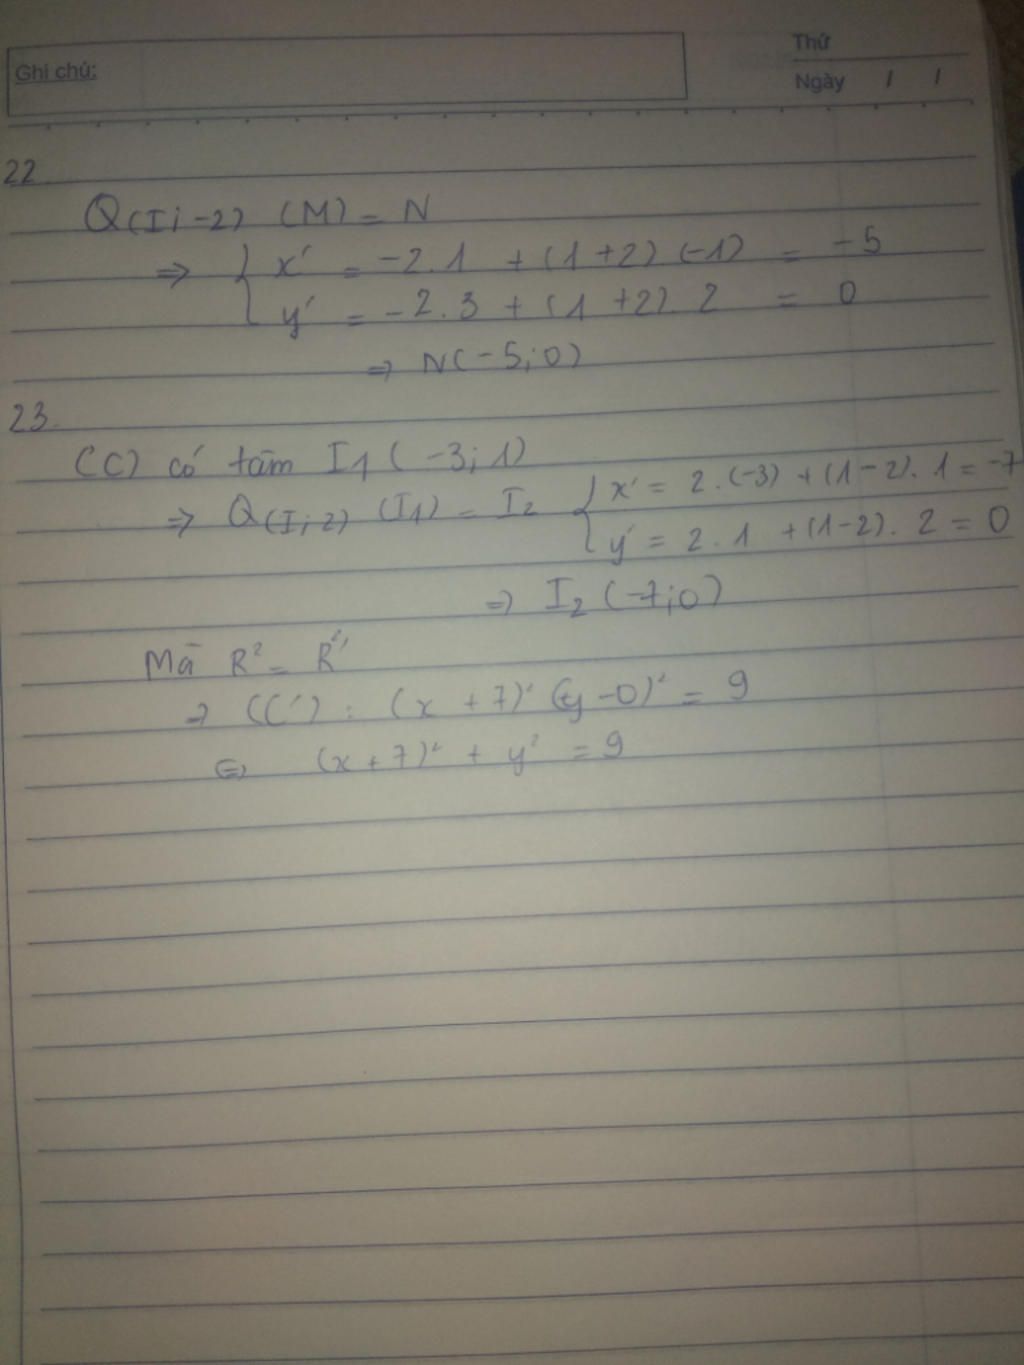 Ghi chú:
Thứ
Ngày / /
22
Q(I;-2) (M) = N
=> { x' = -2.1 + (1+2) (-1) = -5
y' = -2.3 + (1+2). 2 = 0
=> N(-5;0)
23.
(C) có tâm I1 (-3;1)
=> Q(I;2) (I1) = I2 { x' = 2.(-3) + (1-2). 1 = -7
y' = 2.1 + (1-2). 2 = 0
=> I2 (-7;0)
Mà R² = R'²
=> (C') : (x + 7)² + (y-0)² = 9
<=> (x+7)² + y² = 9